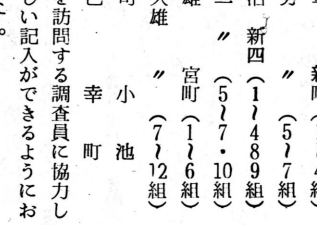 （1〜4
〃（5〜7
新四（1〜4 8 9組）
〃（5〜7・10組）
雄 宮町（1〜6組）
雄 〃（7〜12組）
小池
幸町
を訪問する調査員に協力し
しい記入ができるようにお
す。